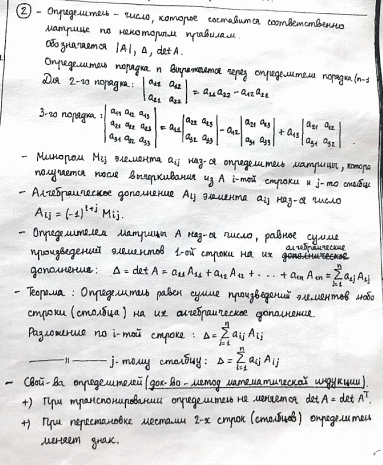 ② - Определитель - число, которое составится соответственно
матрице по некоторым правилам.
Обозначается |A|, Δ, det A.
Определитель порядка n выражается через определители порядка (n-1
Для 2-го порядка: |a11 a12; a21 a22| = a11 a22 - a12 a21
3-го порядка: |a11 a12 a13; a21 a22 a23; a31 a32 a33| = a11 |a22 a23; a32 a33| - a12 |a21 a23; a31 a33| + a13 |a21 a22; a31 a32|
- Минором Mij элемента aij наз-ся определитель матрицы, котора
получается после вычеркивания из A i-той строки и j-го столбца
- Алгебраическое дополнение Aij элемента aij наз-ся число
Aij = (-1)^(i+j) Mij.
- Определителем матрицы A наз-ся число, равное сумме
произведений элементов 1-ой строки на их алгебраические
дополнение: Δ = det A = a11 A11 + a12 A12 + ... + a1n A1n = Σ
- Теорема: Определитель равен сумме произведений элементов любо
строки (столбца) на их алгебраическое дополнение.
Разложение по i-той строке: Δ = Σ aij Aij
—— 〃 —— j-тому столбцу: Δ = Σ aij Aij
- Свой-ва определителей (док-во - метод математической индукции).
+) При транспонировании определитель не меняется det A = det Aᵀ.
+) При перестановке местами 2-х строк (столбцов) определитель
меняет знак.